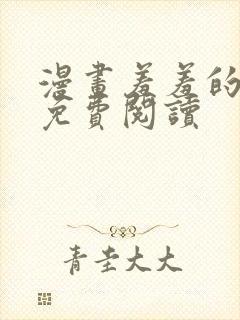 漫畫羞羞的
免費閱讀
青圭大大